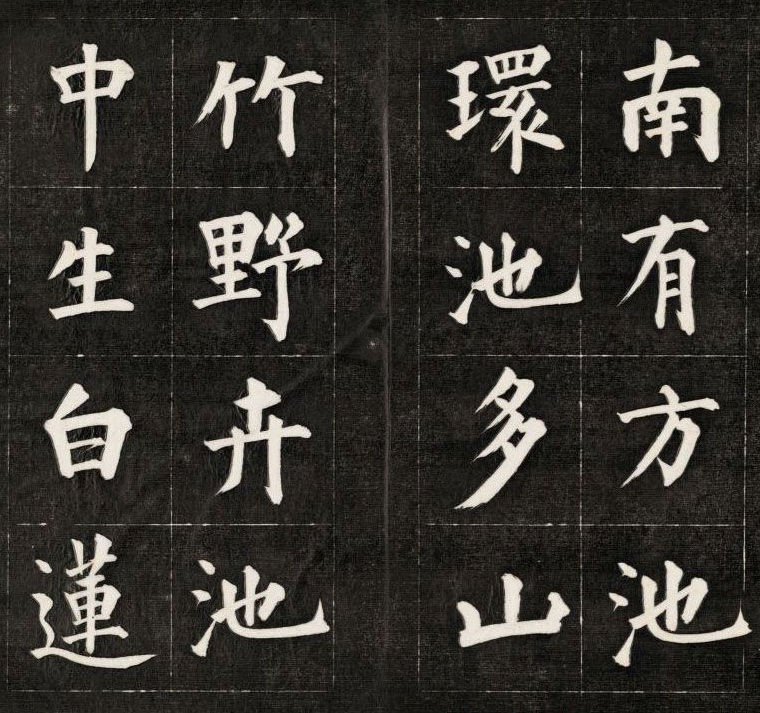 南有方池
環池多山
竹野卉池
中生白蓮